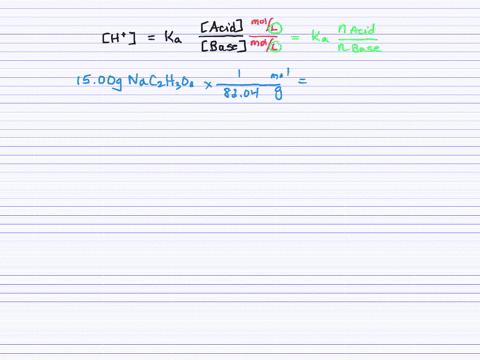 [H⁺] = Ka [Acid] mol/L / [Base] mol/L = Ka n Acid / n Base
15.00g NaC₂H₃O₂ × 1 mol / 82.04 g =